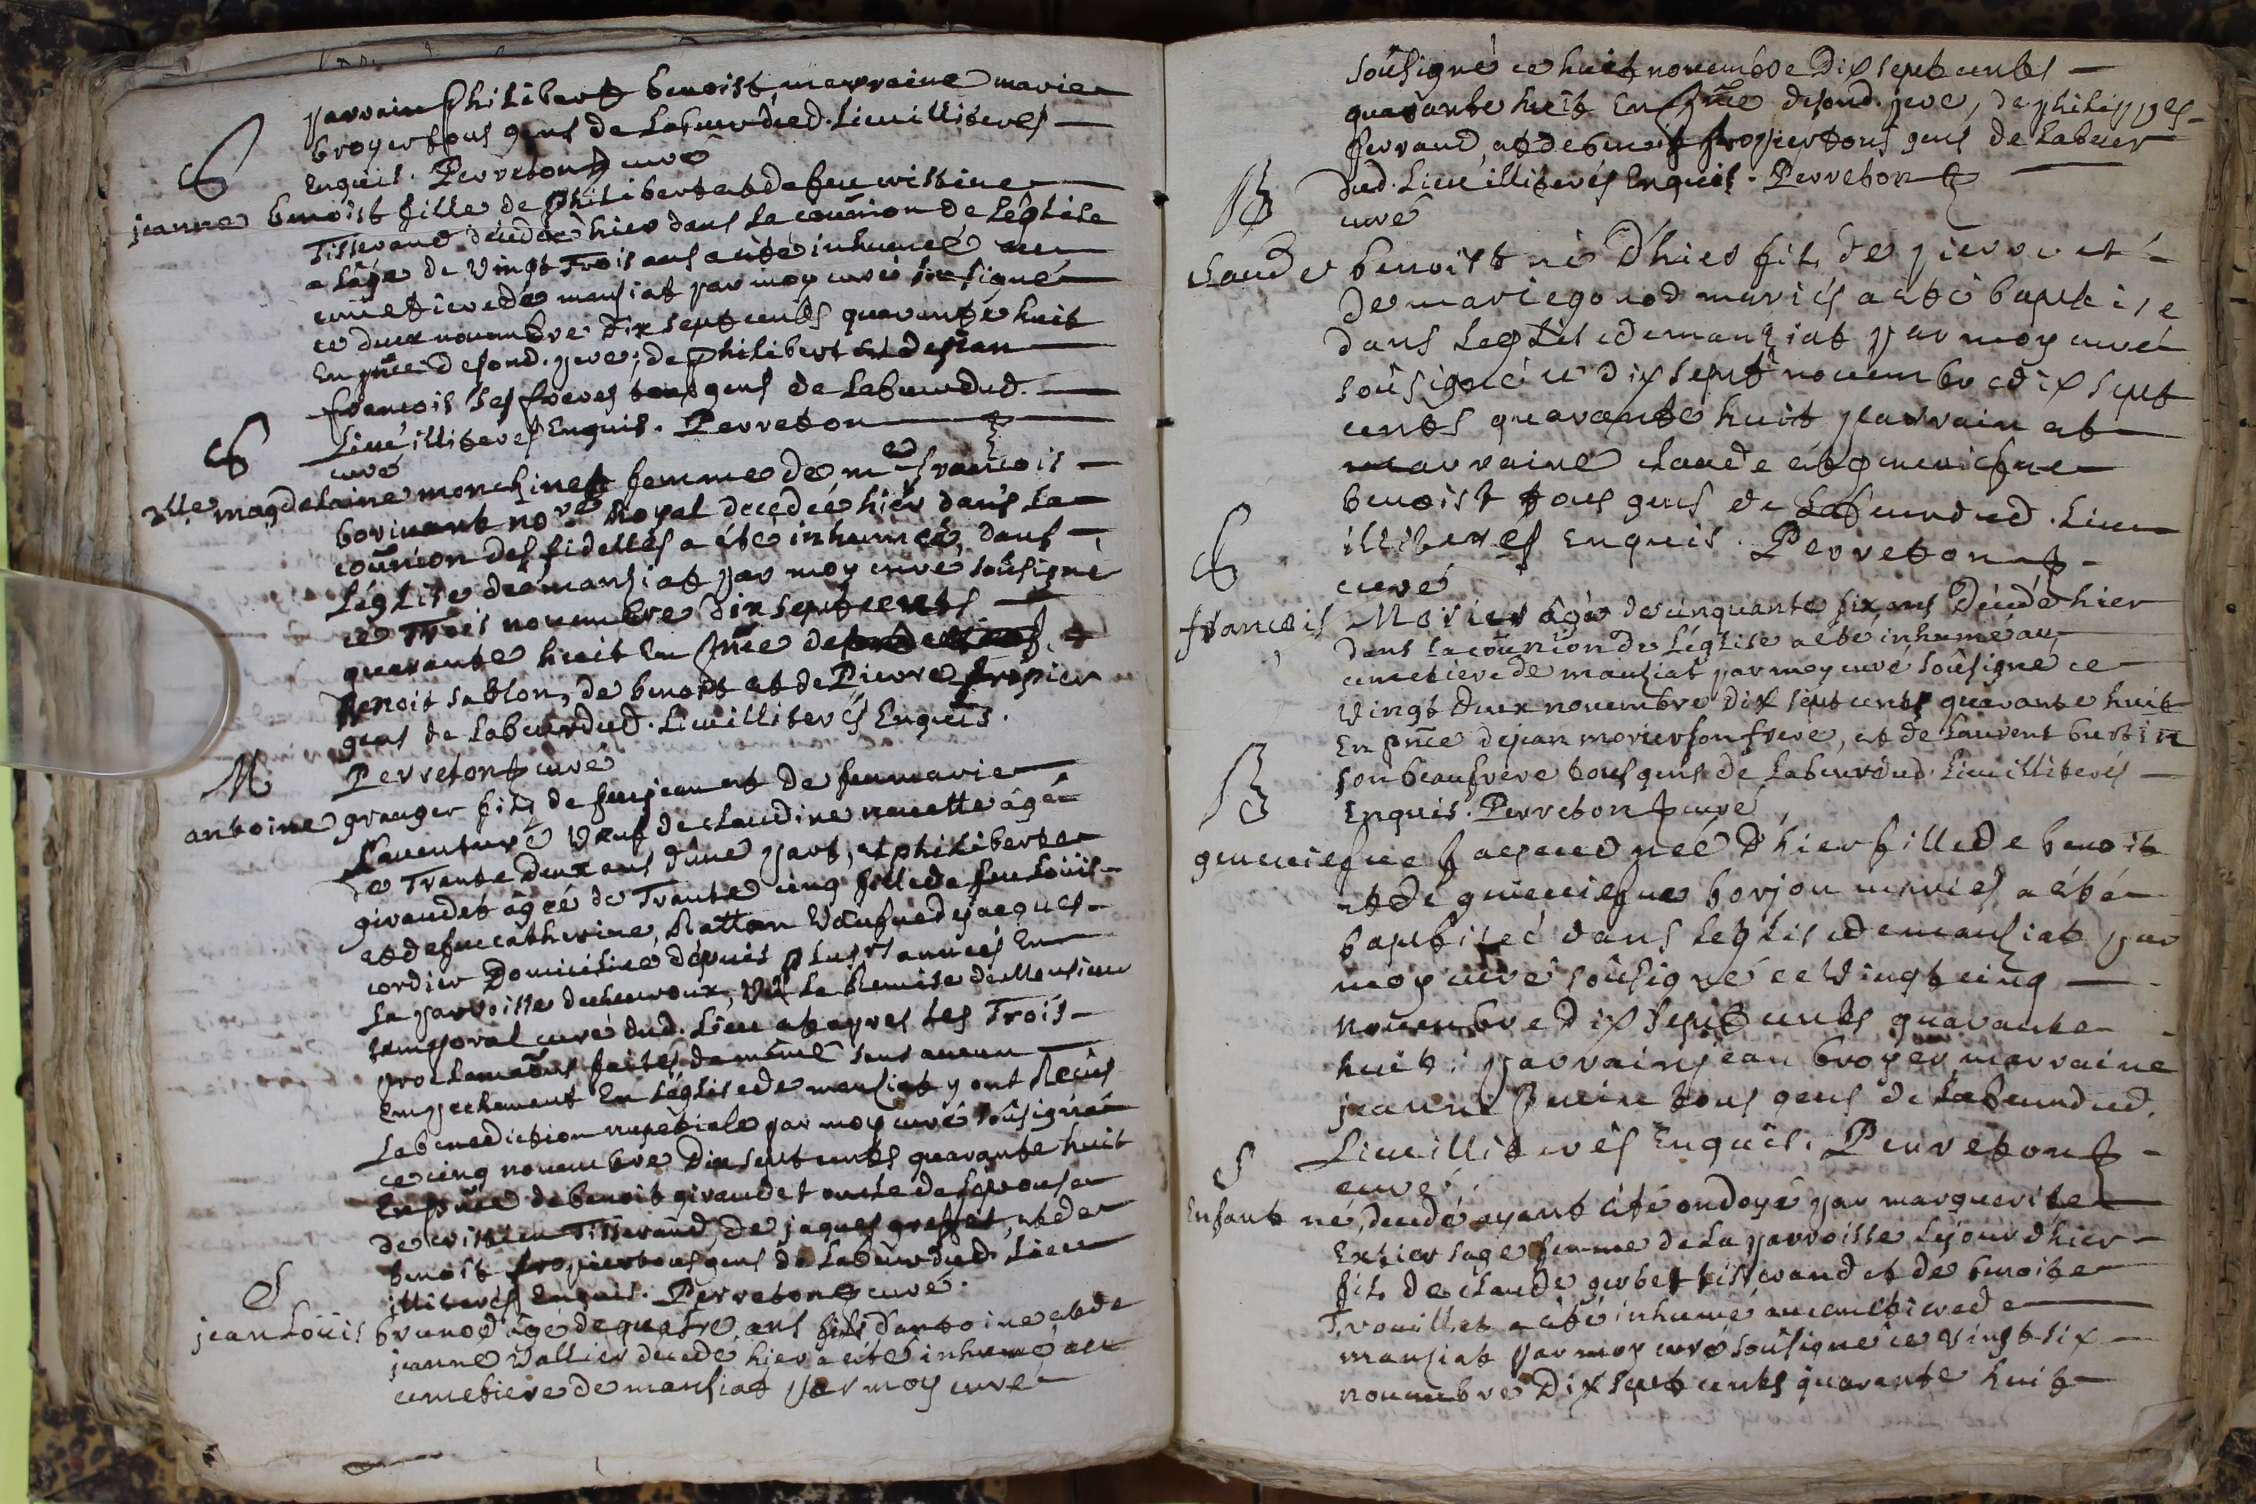 parrain philibert benoist marraine marie
broyer tous gens de labeur dud. lieu illiterés
enquis. Perreton curé
S
jeanne benoist fille de philibert et de feu cristine
Tisserand décedée hier dans la couñion de léglise
a lâge de vingt trois ans a eté inhumée au
cimetiere de manziat par moy curé soûsigné
ce deux novembre dix sept cents quarante huit
en pñce de sond. pere; de philibert et de jean
francois ses freres tous gens de labeur dud.
Lieu illiterés enquis. Perreton
curé
S
Dlle magdelaine monchinet femme de me francois
borivent nore Royal decedée hier dans la
couñion des fidelles a été inhumée dans
Léglise de manziat par moy curé soûsigné
ce Trois novembre dix sept cents
quarante huit en pñce de
Benoit sablon, de benoit et de Pierre fropier
gens de labeur dud. Lieu illiterés Enquis.
Perreton curé
M
antoine granger fils de feu jean et de feu marie
Laventure veuf de claudine navette âgé
de Trente deux ans dûne part, et philiberte
giraudet âgée de Trente cinq fille de feu Loüis
et de feu catherine Ratton veufue de jacques
cordier Domiciliée depuis plusrs années En
La parroisse de chevroux, vû La Remise de Monsieur
temporal curé dud. Lieu et apres les Trois
proclamaõns faites de même sans aucun
Empechement En Léglise de manziat y ont Reçus
La benediction nuptiale par moy curé soûsigné
ce cinq novembre Dix sept cents quarante huit
En pñce de benoit giraudet oncle de lepouse
de cristin Tisserand de jaques greffet, et de
benoit fropier tous gens de labeur dud. Lieu
illiterés Enquis. Perreton curé.
S
jean Loüis brunod âge de quatre ans fils d'antoine et de
jeanne vallier decedé hier a eté inhumé au
cimetiere de manziat par moy curé
soûsigné ce huit novembre Dix sept cents
quarante huit En pñce de sond. pere, de philippes
ferrand, et de benoit fropier tous gens de labeur
dud. Lieu illiterés Enquis. Perreton
curé
B
claude benoist né D'hier fils de pierre et
de marie gonod mariés a eté baptisé
dans Leglise de manziat par moy curé
soûsigné ce dix sept novembre dix sept
cents quarante huit parrain et
marraine claude et geneviefue
benoist tous gens de labeur dud. Lieu
illiterés enquis. Perreton
curé
S
francois Morier âgé de cinquante six ans Décédé hier
dans la couñion de Léglise a eté inhumé au
cimetiere de manziat par moy curé soûsigné ce
vingt deux novembre Dix sept cents quarante huit
En pñce de jean morier son frere, et de Laurent burtin
son beaufrere tous gens de labeur dud. Lieu illiterés
Enquis. Perreton curé
B
geneviefue née D'hier fille de benoit
et de geneviefue borjon mariés a été
baptisée dans Leglise de manziat par
moy curé soûsigné ce vingt cinq
novembre Dix sept cents quarante
huit: parrain jean broyer marraine
jeanne tous gens de labeur dud.
Lieu illiterés Enquis. Perreton
curé.
S
Enfant né, decedé ayant été ondoyé par marguerite
sage femme de la parroisse Lejour d'hier
fils de claude gerbet tisserand et de benoite
Trouillet a été inhumé au cimetiere de
manziat par moy curé soûsigné ce vingt six
novembre Dix sept cents quarante huit